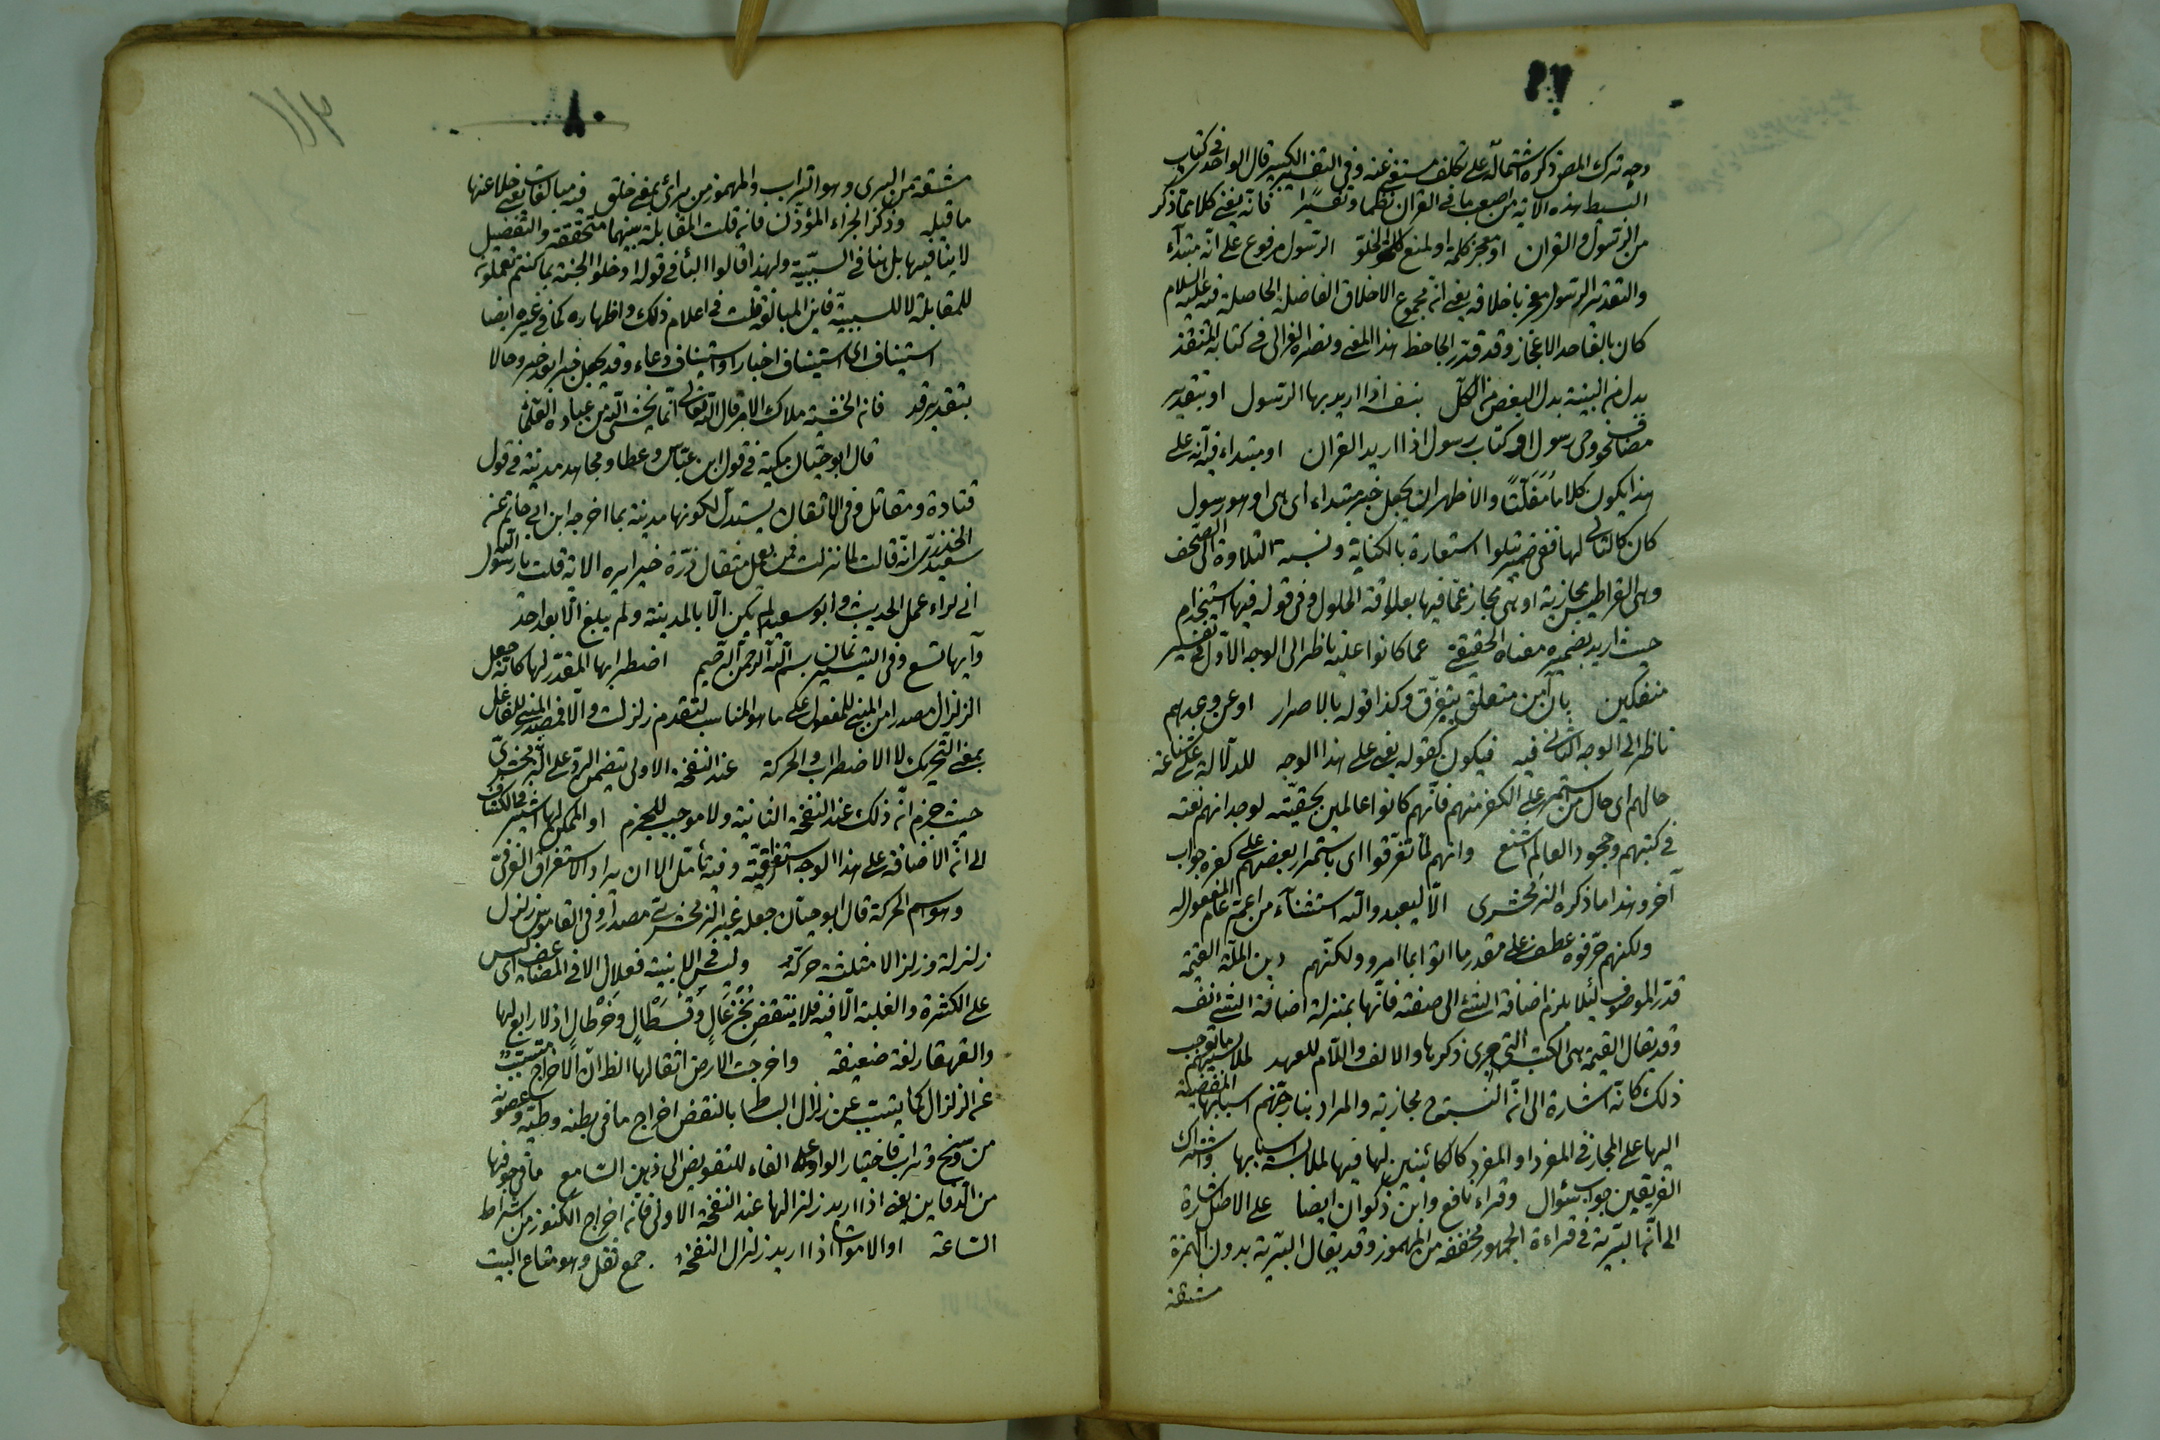 وجه ترك المص ذكره اشتماله على تكلف مستغن عنه وفي التفسير الكبير قال الواحدي في كتاب
البسيط هذه الآية من اصعب ما في القران نظما وتفسيرا فانه يغني كلا مما ذكر
من الرسول والقران او معجز كلمة او لمنع الخلو الرسول مرفوع على انه مبتدأ
والتقدير الرسول معجز باخلاقه يعني انه مجموع الاخلاق الفاضلة الحاصلة فيه عليه السلام
كان بالغا حد الاعجاز وقد قدر الجاحظ هذا المعنى ونصره الغزالي في كتابه المنقذ
بدل من البينة بدل البعض من الكل بنفسه اذا اريد بها الرسول او بتقدير
مضاف نحو وحي رسول او كتاب رسول اذا اريد القران او مبتداء فيه انه على
هذا يكون كلاما مفلتا والاظهر ان يجعل خبر مبتداء اي هي او هو رسول
كان كالتالي لها ففي ضمير يتلوا استعارة بالكناية ونسبة التلاوة الى الصحف
وهي القراطيس مجازية او هي مجاز عما فيها بعلاقة الحلول وفي قوله فيها استخدام
حيث اريد بضميره معناه الحقيقي عما كانوا عليه ناظر الى الوجه الاول في تفسير
منفكين بان آمن متعلق بتفرق وكذا قوله بالاصرار او عن وعدهم
ناظر الى الوجه الثاني فيه فيكون كقوله يعني على هذا الوجه للدلالة على شناعة
حالهم اي حال من استمر على الكفر منهم فانهم كانوا عالمين بحقيته لوجدانهم نعته
في كتبهم وجحود العالم اشنع وانهم لما تفرقوا اي باستمرار بعضهم على كفره جواب
آخر وهذا ما ذكره الزمخشري الا ليعبدوا الله استثناء من اعم عام المفعول له
ولكنهم حرفوه عطف على مقدر ما اتوا بما امروا ولكنهم دين الملة القيمة
قدر الموصوف لئلا يلزم اضافة الشئ الى صفته فانها بمنزلة اضافة الشئ لنفسه
وقد يقال القيمة هي الكتب التي جرى ذكرها والالف واللام للعهد لملابستهم ما توجب
ذلك كانه اشارة الى ان النسبة مجازية والمراد بنار جهنم اسبابها المفضية
اليها على المجاز في المفرد او المفرد كالكائنين لها فيها لملابسة اسبابها واشتراك
الفريقين جواب سؤال وقراء نافع وابن ذكوان ايضا على الاصل اشارة
الى ان البرية في قراءة الجمهور مخففة من المهموز وقد يقال البرية بدون الهمزة
مشتقة
مشتقة من البرى وهو التراب والمهموز من برأ بمعنى خلق فيه مبالغات يعني خلا عنها
ما قبله وذكر الجزاء المؤذن فانه قلت المقابلة بينهما متحققة والتفضيل
لا ينافيها بل ينافي السببية ولهذا قالوا الباء في قوله ادخلوا الجنة بما كنتم تعملون
للمقابلة لا للسببية فاين المبالغة قلت في اعلام ذلك واظهاره كما في غيره ايضا
استيناف اي استيناف اخبار او استيناف دعاء وقد يجعل خبرا بعد خبر وحالا
بتقدير قد فانه الخشية ملاك الامر قال الله تعالى انما يخشى الله من عباده العلماء
قال ابو حيان مكية في قول ابن عباس وعطا ومجاهد مدنية في قول
قتادة ومقاتل وفي الاتقان يستدل لكونها مدنية بما اخرجه ابن ابي حاتم عن
سعيد الخدري انه قالت لما نزلت فمن يعمل مثقال ذرة خيرا يره الاية قلت يا رسول الله
اني لراء عمل الحديث وابو سعيد لم يكن الا بالمدينة ولم يبلغ الا بعد احد
وآيها تسع وفي التيسير ثمان بسم الله الرحمن الرحيم اضطرابها المقدر لها كانه جعل
الزلزال مصدرا من المبني للمفعول على ما هو المناسب لتقدم زلزلت والا فمصدر المبني للفاعل
بمعنى التحريك لا الاضطراب والحركة عند النفخة الاولى يتضمن الرد على الزمخشري
حيث جزم انه ذلك عند النفخة الثانية ولا موجب للجزم او الممكن لها اشير في الكشاف
الى ان الاضافة على هذا الوجه استغراقية وفيه تأمل الا ان يراد الاستغراق العرفي
وهو اسم الحركة قال ابو حيان جعله غير الزمخشري مصدرا وفي القاموس زلزل
زلزلة وزلزالا مثلثة حركه وليس في الابنية فعلال الا في المضاعف اي ليس
على الكثرة والغلبة الا فيه فلا ينتقض بخزعال وقسطال وخرطال اذ لا رابع لها
والقهقار لغة ضعيفة واخرجت الارض اثقالها انظر ان الاخراج متسبب
عن الزلزال كما ينبت عن زلزال البساط بالنقض اخراج ما في بطنه وطيه وغصونه
من وسخ وتراب فاختيار الواو على الفاء للتفويض الى ذهن السامع ما في جوفها
من الدفاين يعني اذا اريد زلزالها عند النفخة الاولى فانه اخراج الكنوز من اشراط
الساعة او الاموات اذا اريد زلزال النفخة جمع ثقل وهو متاع البيت